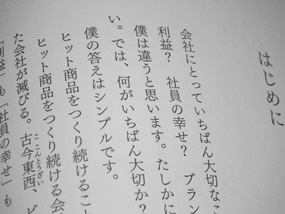 はじめに
会社にとっていちばん大切なこ
利益？　社員の幸せ？　ブラン
僕は違うと思います。たしかに
い。では、何がいちばん大切か？
僕の答えはシンプルです。
ヒット商品をつくり続けること
ヒット商品をつくり続ける会
た会社が滅びる。古今東西、ビ
「利益」も「社員の幸せ」も